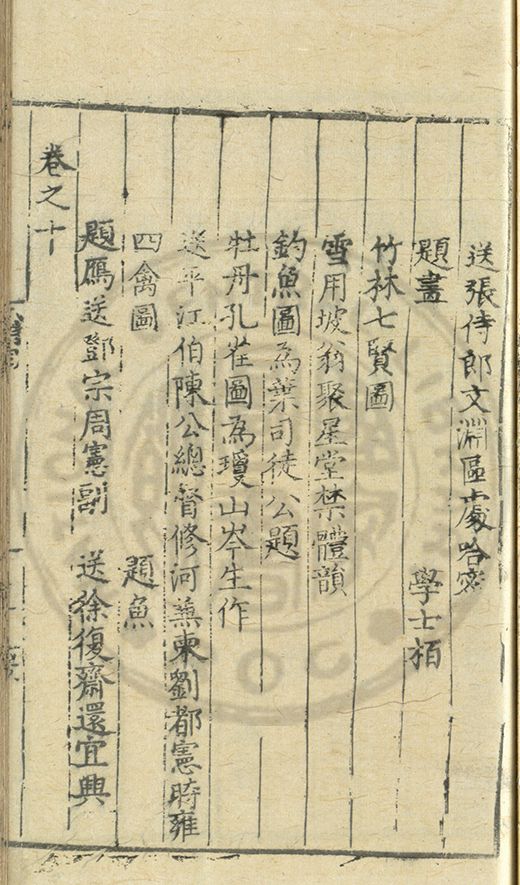 送張侍郎文淵區處哈密
題畫 學士栢
竹林七賢圖
雪用坡翁聚星堂禁體韻
釣魚圖為葉司徒公題
牡丹孔雀圖為瓊山岑生作
送平江伯陳公總督修河兼柬劉都憲時雍
四禽圖 題魚
題鴈送鄧宗周憲副 送徐復齋還宜興
卷之十